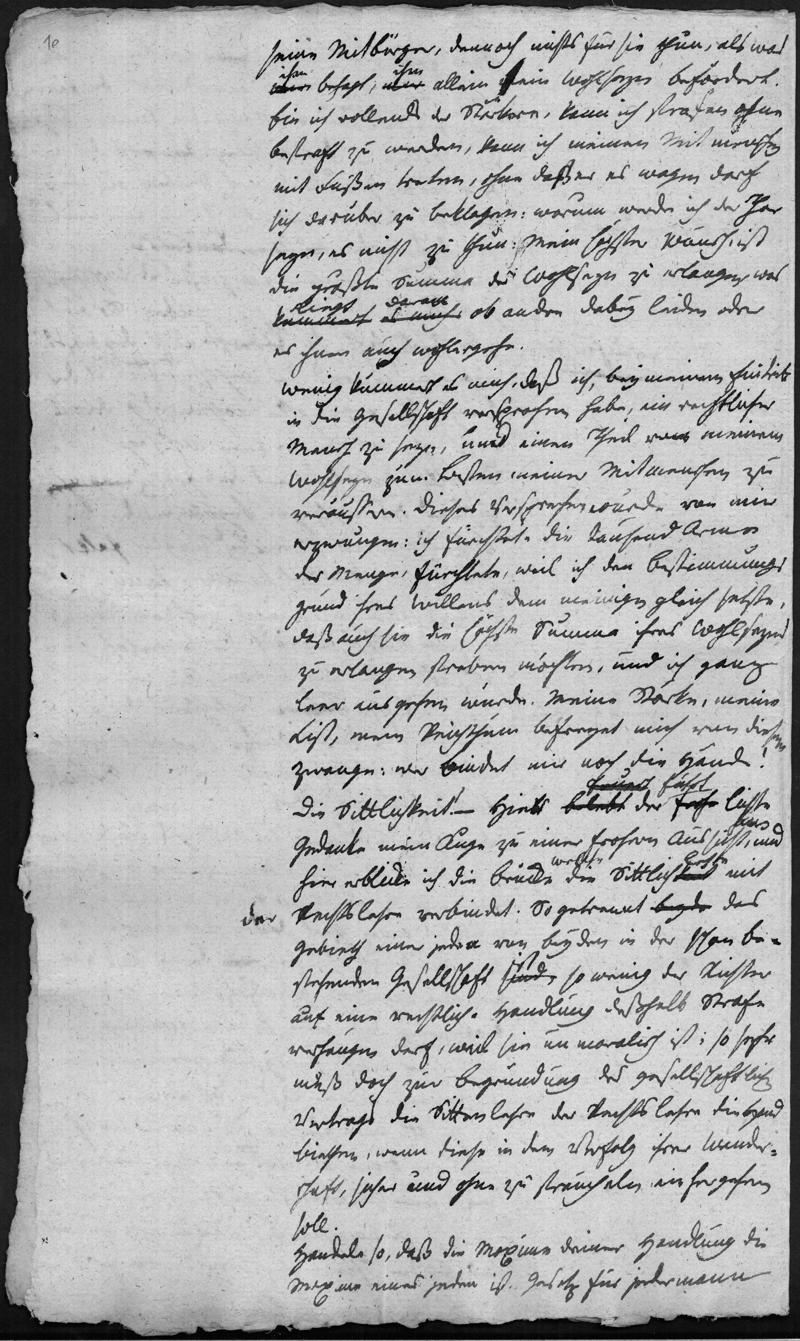 10
seine Mitbürger, dennoch nichts für sie thun, als was
ihm behagt, ihm allein sein Wohlseyn befördert.
bin ich vollends der Stärkere, kann ich strafen ohne
bestraft zu werden, kann ich meinen Mitmenschen
mit Füßen treten, ohne daß er es wagen darf
sich darüber zu beklagen: warum werde ich der Thor
seyn, es nicht zu thun: Mein höchster Wunsch ist
die größte Summa des Wohlseyns zu erlangen, was
liegt daran
kümmert es mich ob andere dabey leiden oder
es ihnen auch wohlergehe.
Wenig kümmert es mich, daß ich, bey meinem Eintritt
in die Gesellschaft versprochen habe, ein rechtlicher
Mensch zu seyn, und einen Theil von meinem
Wohlseyn zum Besten meiner Mitmenschen zu
veräussern. Dieses Versprechen wurde von mir
erzwungen: ich fürchtete die tausend Arme
der Menge, fürchtete, weil ich den Bestimmungs
grund ihres Willens dem meinigen gleich setzte,
daß auch sie die höchste Summa ihres Wohlseyns
zu erlangen streben möchten, und ich ganz
leer ausgehen würde. Meine Stärke, meine
List, mein Reichthum befreyet mich von diesem
Zwange: wer bindet mir noch die Hände!
führt
Die Sittlichkeit! — Hier belebt der lichte
Gedanke mein Auge zu einer frohern Aussicht, und
hier erblicke ich die Brücke welche die Sittlichkeit mit
der Rechtslehre verbindet. So getrennt beyde das
Gebieth einer jeden von beyden in der schon be-
stehenden Gesellschaft ist, so wenig der Richter
auf eine rechtliche Handlung deßhalb Strafe
verhängen darf, weil sie unmoralisch ist; so sehr
muß doch zur Begründung des gesellschaftlichen
Vertrags die Sittenlehre der Rechtslehre die Hand
biethen, wenn diese in dem Verfolg ihrer Wander-
schaft, sicher und ohne zu straucheln einhergehen
soll.
Handele so, daß die Maxime deiner Handlung die
Maxime eines jeden ist. Gesetz für jedermann